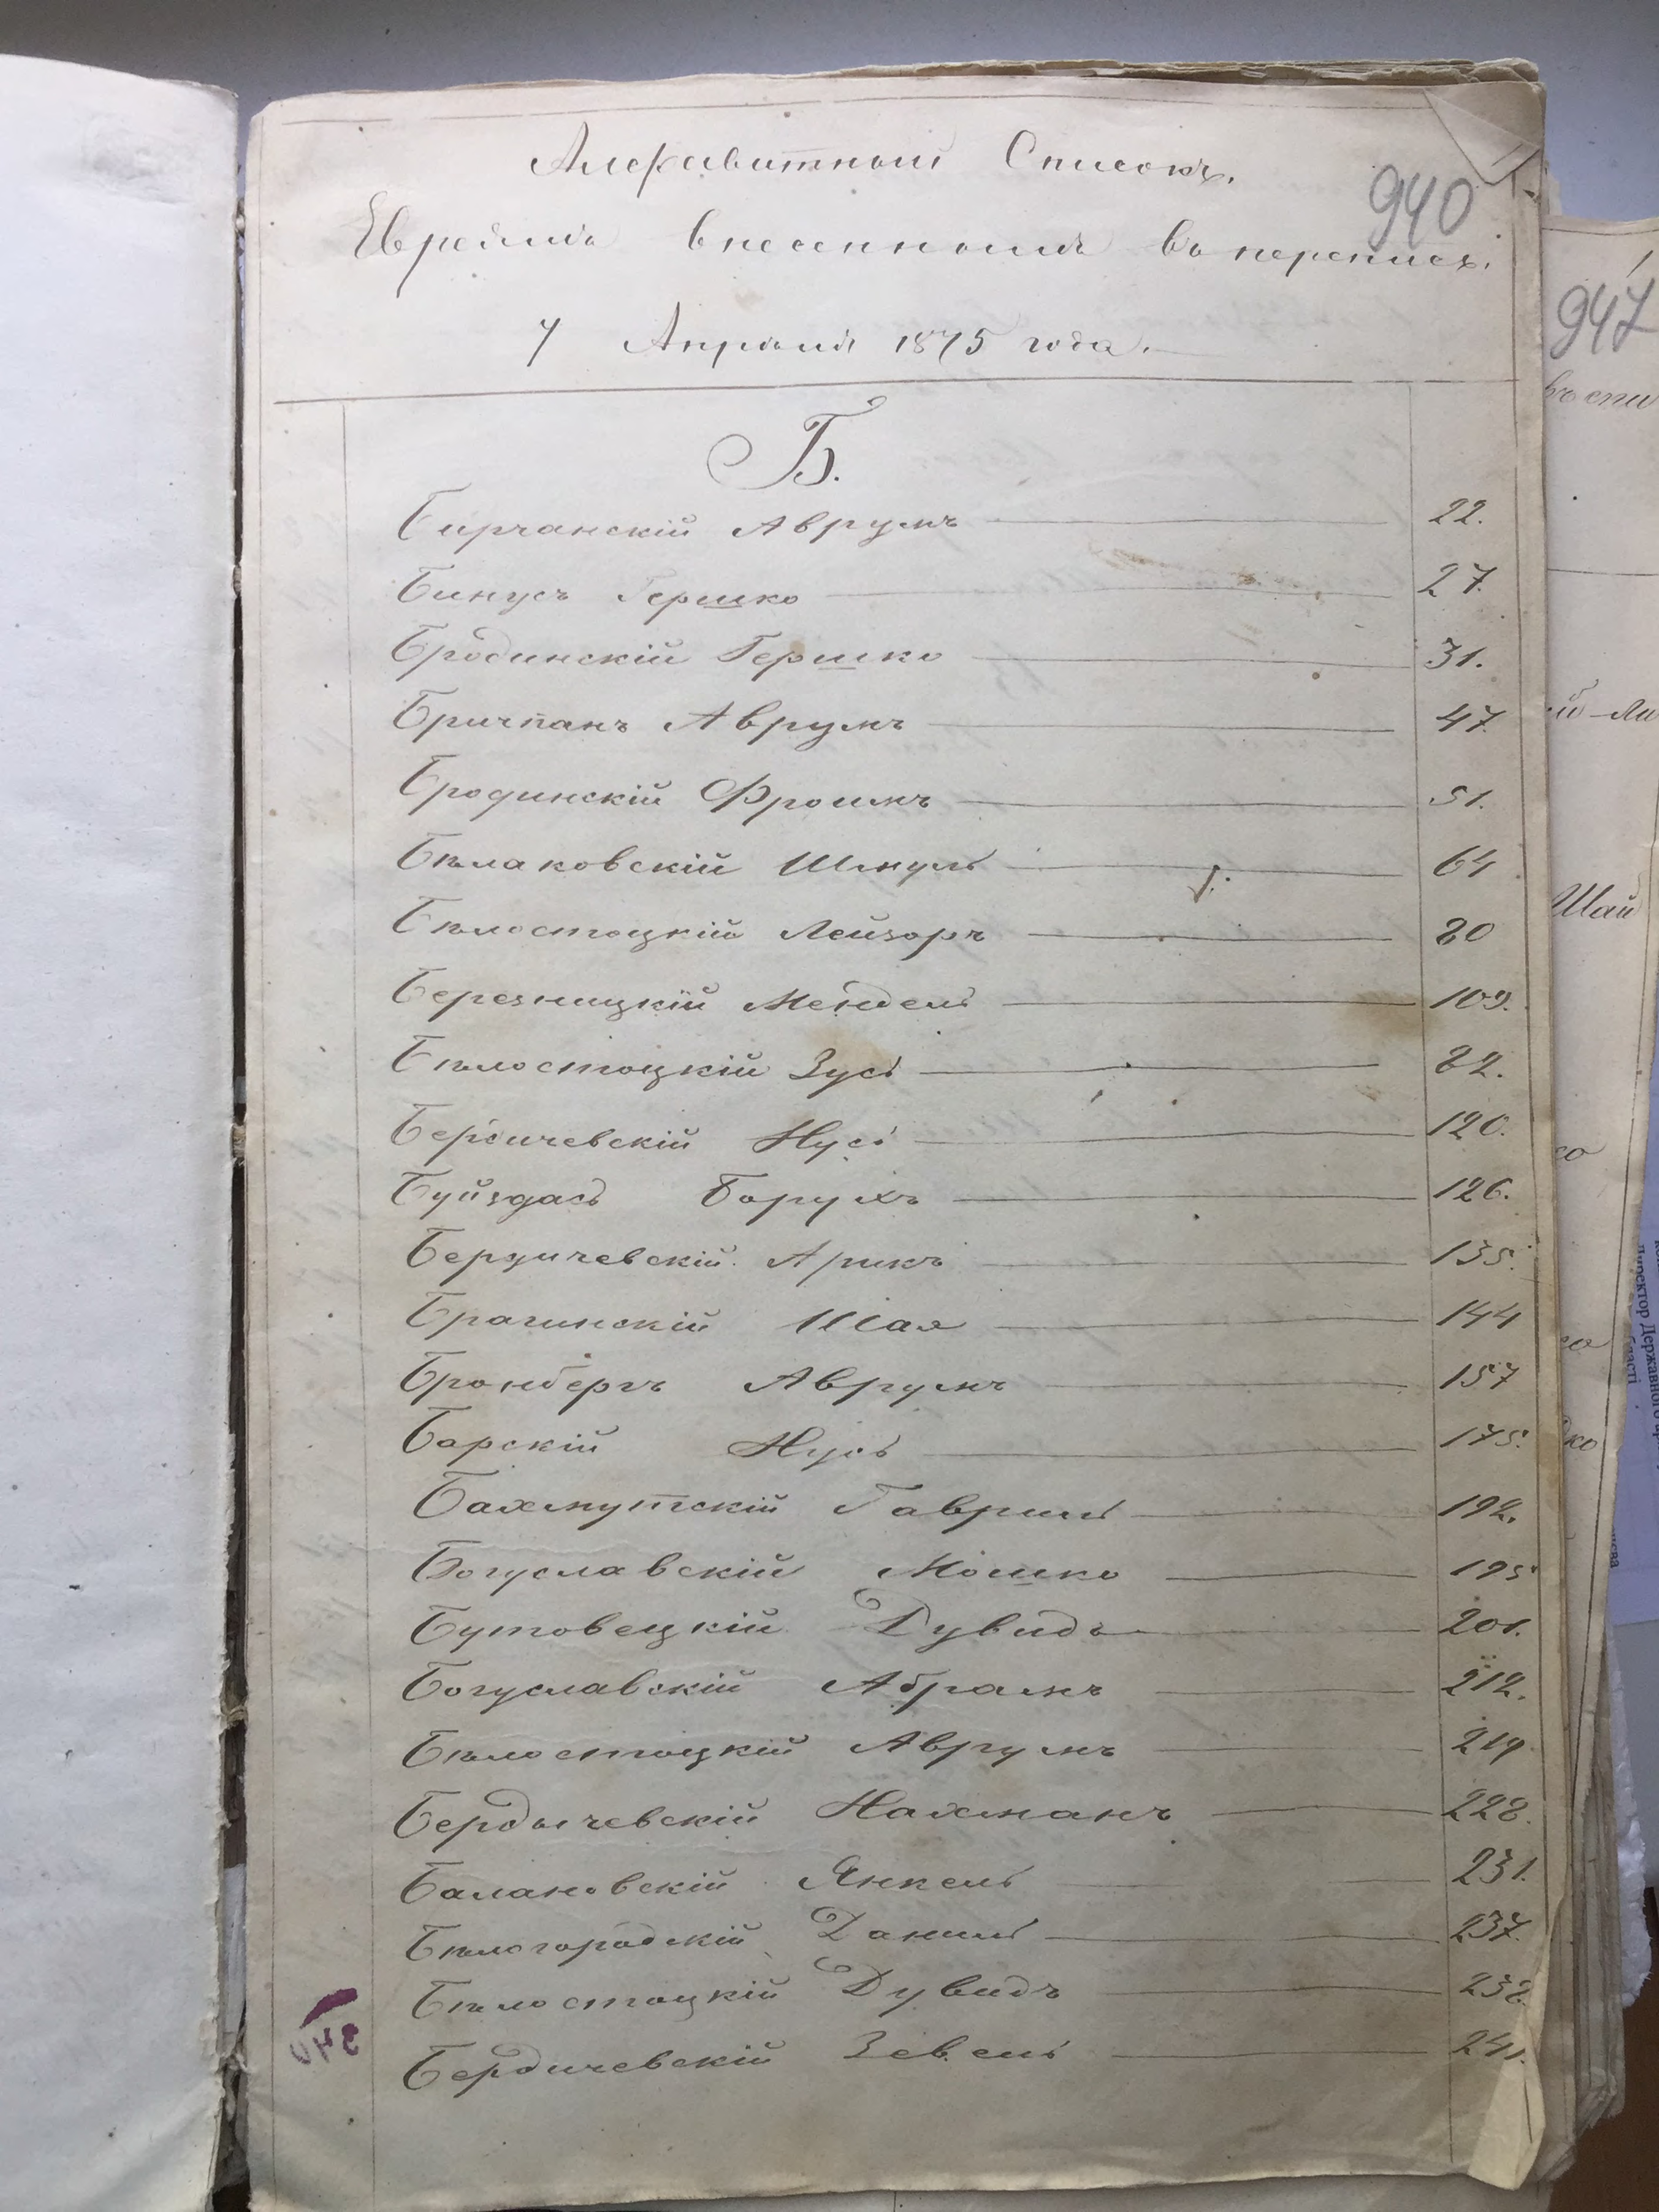 Алфавитный Списокъ.
940
Евреямъ внесеннымъ въ перепись.
7 Апрѣля 1875 года.
Б.
Бирчанскій Аврумъ 22.
Бинусъ Гершко 27.
Бродинскій Гершко 31.
Бричпанъ Аврумъ 47.
Бродинскій Фроимъ 51.
Бѣлаковскій Шмуль 64
Бѣлостоцкій Лейзоръ 80
Березницкій Мендель 109.
Бѣлостоцкій Зусь 82.
Бердичевскій Нусь 120.
Буйздась Борухъ 126.
Бердичевскій Арикъ 135.
Брагинскій Шая 144
Бронбергъ Аврумъ 157
Барскій Нусь 175.
Бахмутскій Гавриль 192.
Богуславскій Мошко 195
Бутовецкій Дувидъ 201.
Богуславскій Абрамъ 212.
Бѣлостоцкій Аврумъ 219
Бердычевскій Нахманъ 228.
Балановскій Янкель 231.
Бѣлогородскій Даниль 237.
Бѣлостоцкій Дувидъ 238.
Бердичевскій Зевель 241.
947
въ спи
Шай
со
ко